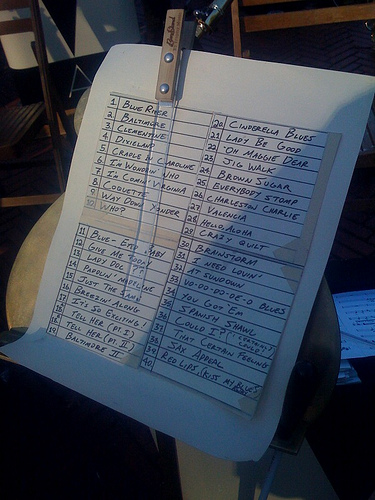 1 Blue River
2 Baltimore
3 Clementine
4 Dixieland
5 Cradle in Caroline
6 I'm Wondrin' Who
7 I'm Comin' Virginia
8 Coquette
9 Way Down Yonder
10 Who?
11 Blue-Eyed Baby
12 Give Me Today
13 Lady Doc
14 Paddlin' Madeline
15 Just the Same
16 Breezin' Along
17 It's So Exciting!
18 Tell Her (Pt. I)
19 Tell Her (Pt. II)
Baltimore II
20 Cinderella Blues
21 Lady Be Good
22 'Oh Maggie Dear
23 Jig Walk
24 Brown Sugar
25 Everybody Stomp
26 Charleston Charlie
27 Valencia
28 Hello Aloha
29 Crazy Quilt
30 Brainstorm
31 I Need Lovin'
32 At Sundown
33 Vo-do-do-de-o Blues
34 You Got 'Em
35 Spanish Shawl
36 Could I? (I Certainly Could)
37 That Certain Feeling
38 Sax Appeal
39 Red Lips, Kiss My Blues
40